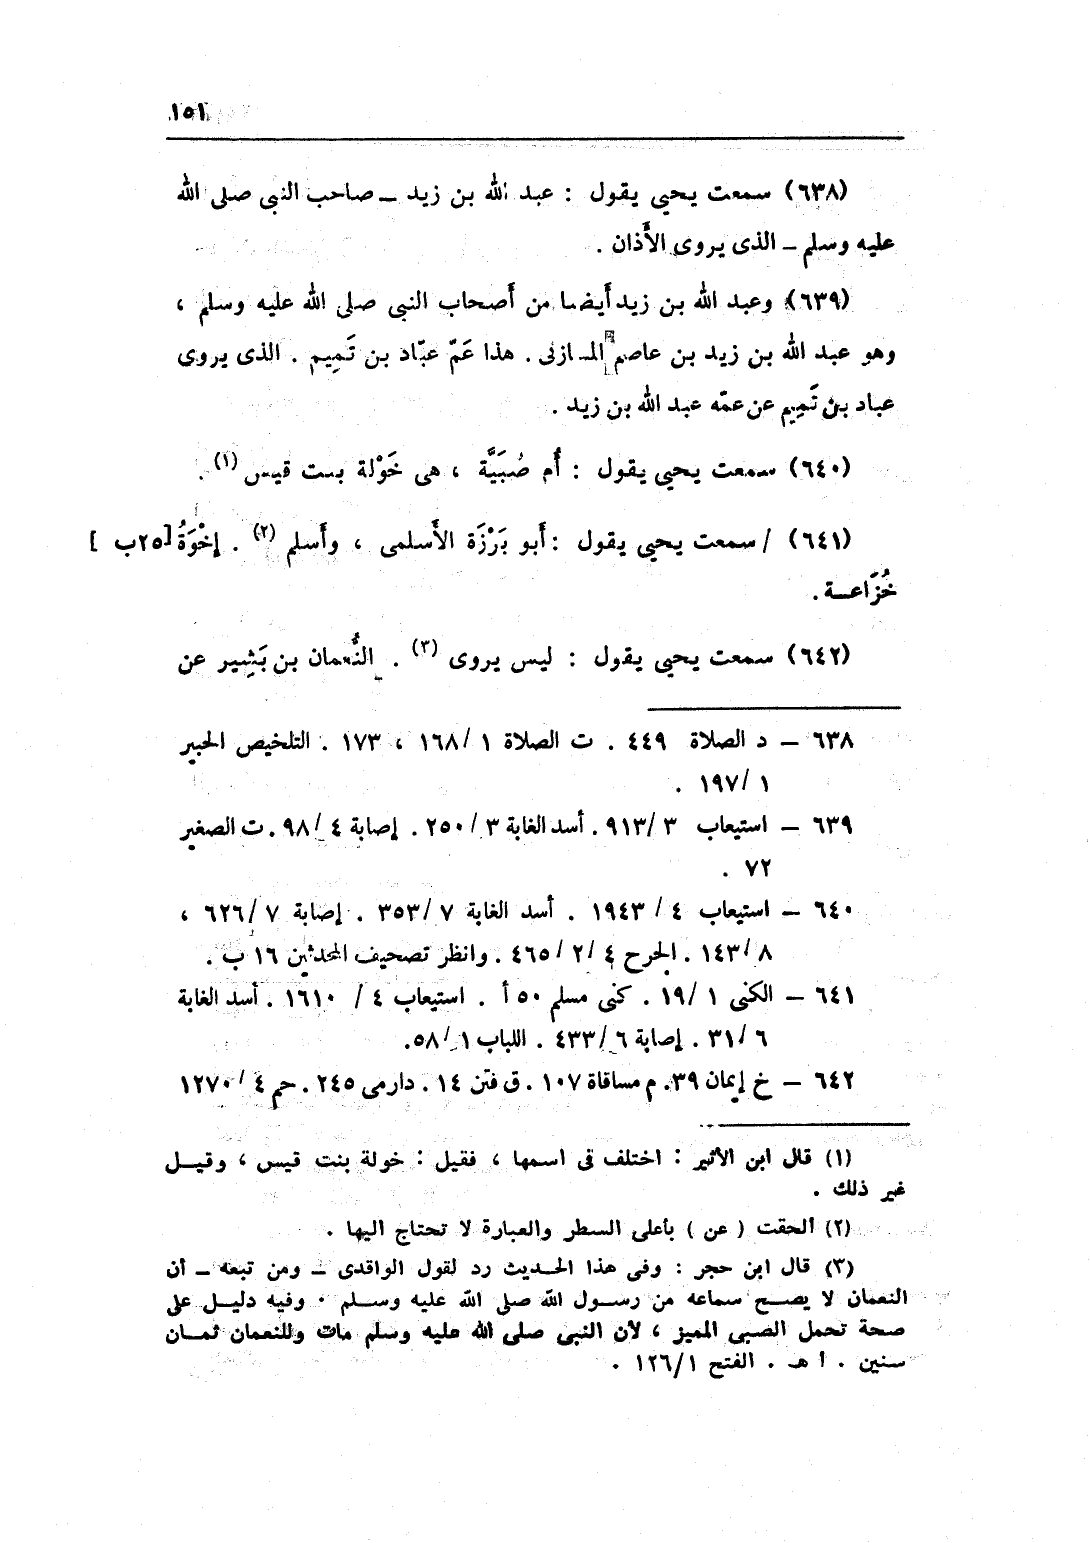 ١٥١
(٦٣٨) سمعت يحيى يقول : عبد الله بن زيد ــ صاحب النبى صلى الله
عليه وسلم ــ الذى يروى الأذان .
(٦٣٩) وعبد الله بن زيد أيضا من أصحاب النبى صلى الله عليه وسلم ،
وهو عبد الله بن زيد بن عاصم المازنى . هذا عَمّ عبّاد بن تَمِيم . الذى يروى
عباد بن تَمِيم عن عمّه عبد الله بن زيد .
(٦٤٠) سمعت يحيى يقول : أُم صُبَيَّة ، هى خَوْلة بنت قيس (١) .
(٦٤١) / سمعت يحيى يقول : أَبو بَرْزَة الأَسلمى ، وأَسلم (٢) . إخْوَةُ [٢٥ب ]
خُزَاعـة .
(٦٤٢) سمعت يحيى يقول : ليس يروى (٣) . النُّعمان بن بَشِير عن
٦٣٨ ــ د الصلاة ٤٤٩ . ت الصلاة ١ /١٦٨ ، ١٧٣ . التلخيص الحبير
١ /١٩٧ .
٦٣٩ ــ استيعاب ٣ /٩١٣ . أسد الغابة ٣ /٢٥٠ . إصابة ٤ /٩٨ . ت الصغير
٧٢ .
٦٤٠ ــ استيعاب ٤ / ١٩٤٣ . أسد الغابة ٧ /٣٥٣ . إصابة ٧ /٦٢٦ ،
٨ /١٤٣ . الجرح ٤ /٢ /٤٦٥ . وانظر تصحيف المحدثين ١٦ ب .
٦٤١ ــ الكنى ١ /١٩ . كنى مسلم ٥٠ أ . استيعاب ٤ / ١٦١٠ . أسد الغابة
٦ /٣١ . إصابة ٦ /٤٣٣ . اللباب ١ /٥٨ .
٦٤٢ ــ خ إيمان ٣٩ . م مساقاة ١٠٧ . ق فتن ١٤ . دارمى ٢٤٥ . حم ٤ /١٢٧٠
(١) قال ابن الأثير : اختلف فى اسمها ، فقيل : خولة بنت قيس ، وقيـل
غير ذلك .
(٢) ألحقت ( عن ) بأعلى السطر والعبارة لا تحتاج اليها .
(٣) قال ابن حجر : وفى هذا الحـديث رد لقول الواقدى ــ ومن تبعه ــ أن
النعمان لا يصـح سماعه من رسـول الله صلى الله عليه وسـلم . وفيه دليـل على
صحة تحمل الصبى المميز ، لأن النبى صلى الله عليه وسلم مات وللنعمان ثمـان
سنين . ا هـ . الفتح ١٢٦/١ .